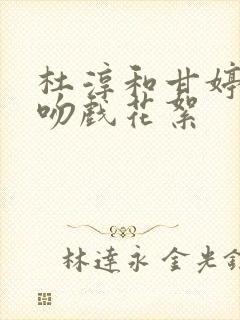 杜淳和甘婷
吻戏花絮
林達永 金光鉉